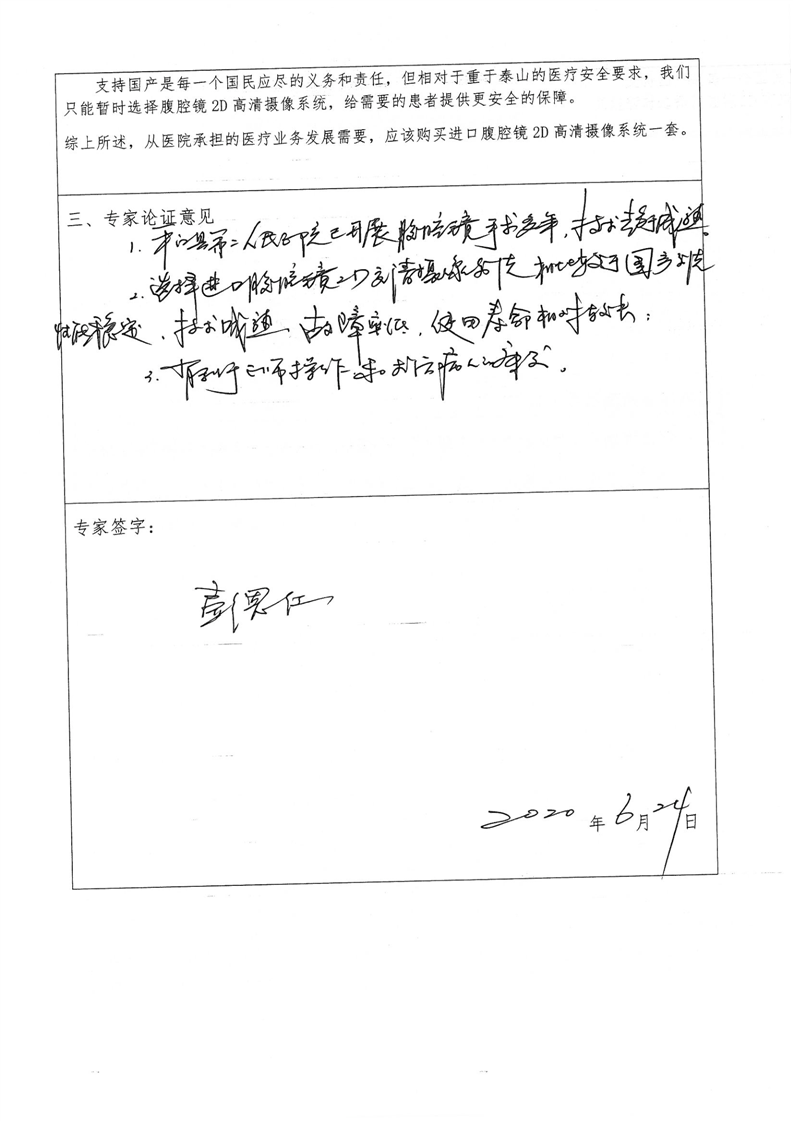 支持国产是每一个国民应尽的义务和责任，但相对于重于泰山的医疗安全要求，我们
只能暂时选择腹腔镜 2D 高清摄像系统，给需要的患者提供更安全的保障。
综上所述，从医院承担的医疗业务发展需要，应该购买进口腹腔镜 2D 高清摄像系统一套。
三、专家论证意见
1. 县第二人民医院已开展腹腔镜手术多年，技术成熟。
2. 选择进口腹腔镜2D高清摄像系统相比较于国产系统
性能稳定、技术成熟、故障率低，使用寿命相对较长；
3. 有利于医师操作和病人的康复。
专家签字：
彭恩仁
2020 年 6 月 24 日